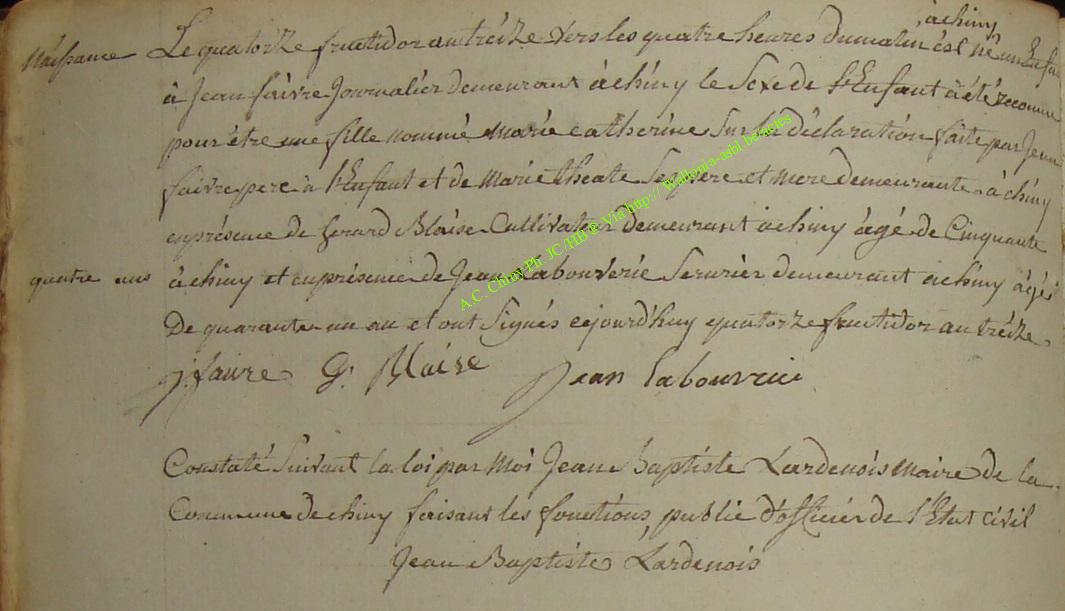 à chiny
Naissance Le quatorze fructidor an treize vers les quatre heures du matin est né un Enfan
à Jean faivre Journalier demeurant à chiny le Sexe de l'Enfant à été reconnu
pour être une fille nommé Marie catherine Sur la déclaration faite par Jean
faivre pere à l'Enfant et de Marie theate Ses pere et mere demeurante à chiny
en présence de Gerard Blaise Cultivateur demeurant à chiny âgé de Cinquante
quatre ans à chiny et en présence de Jean Labouverie Serurier demeurant à chiny âgé
De quarante un an et ont Signés cejourd'huy quatorze fructidor an treize
j. faivre G. Blaise Jean Labouverie
Constaté Suivant la loi par Moi Jean Baptiste Lardenois maire de la
Commune de chiny faisant les fonctions, publie d'officier de l'Etat civil
Jean Baptiste Lardenois
A.C. Chiny Ph. JC /HB © Via http:// Wallonia-asbl.be/actes